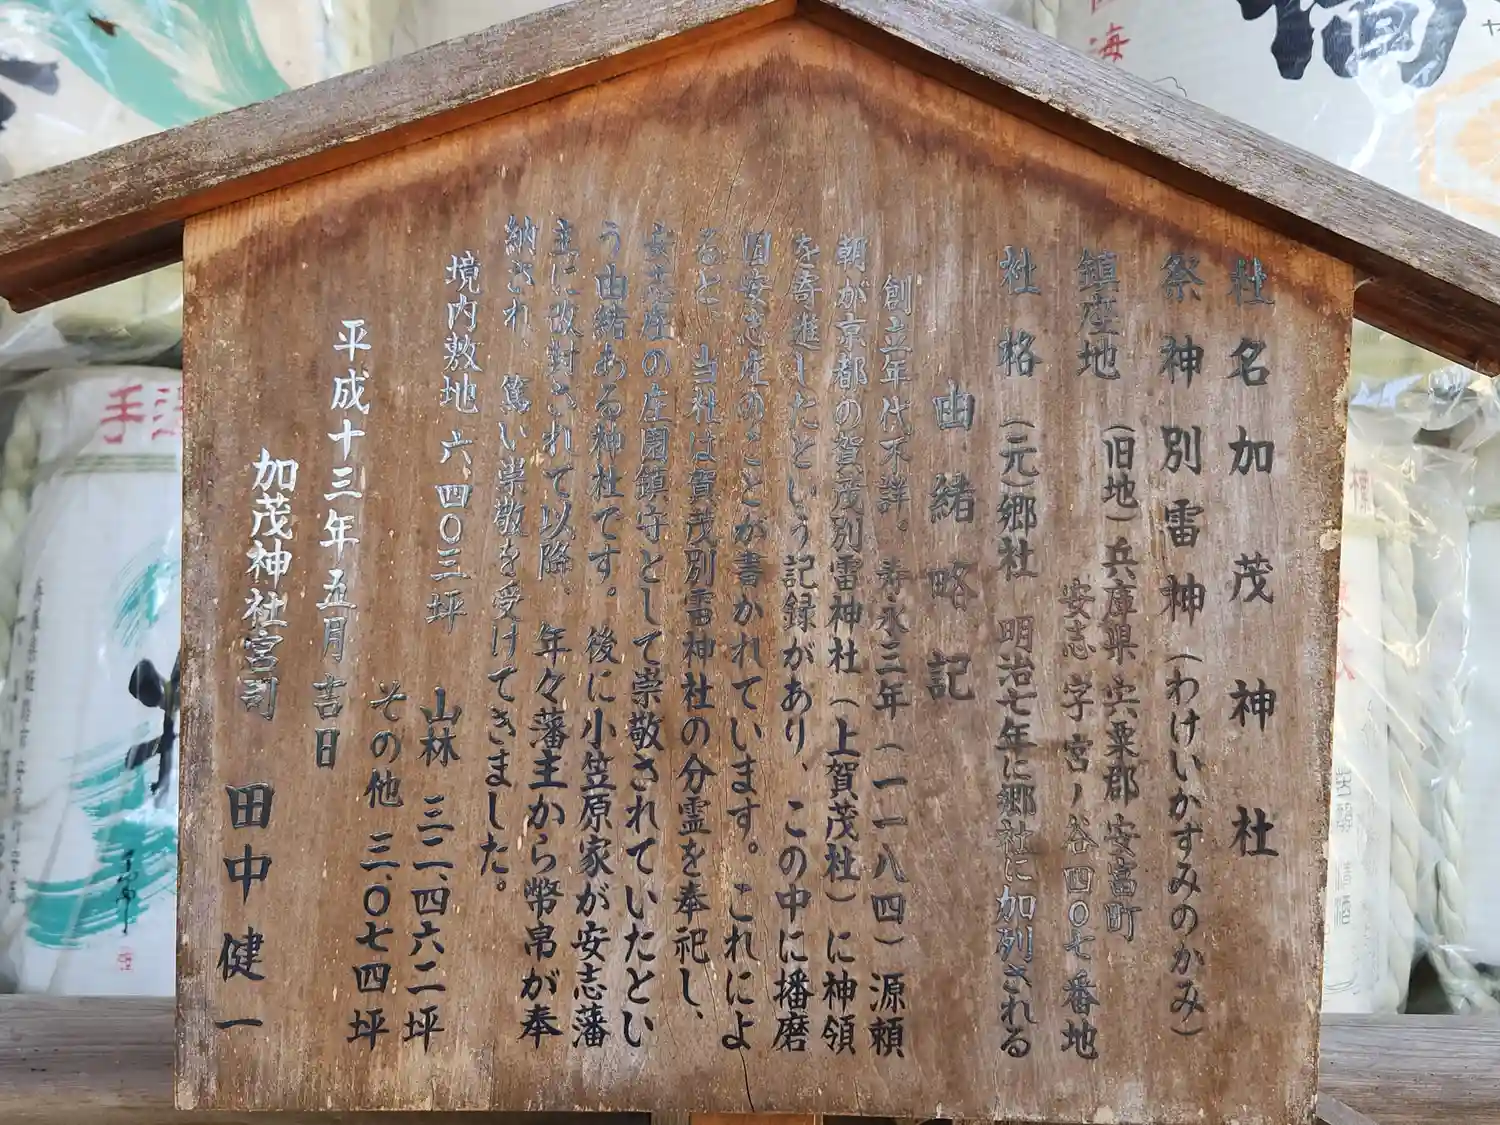 社名 加茂神社
祭神 別雷神（わけいかずみのかみ）
鎮座地（旧地）兵庫県宍粟郡安富町
安志字宮ノ谷四〇七番地
社格（元）郷社 明治七年に郷社に加列される
由緒略記
創立年代不詳。寿永三年（一一八四）源頼
朝が京都の賀茂別雷神社（上賀茂社）に神領
を寄進したという記録があり、この中に播磨
国安志庄のことが書かれています。これによ
ると、当社は賀茂別雷神社の分霊を奉祀し、
安志庄の庄園鎮守として崇敬されていたとい
う由緒ある神社です。後に小笠原家が安志藩
主に改封されて以降、年々藩主から幣帛が奉
納され、篤い崇敬を受けてきました。
境内敷地 六、四〇三坪 山林 三二、四六二坪
その他 三、〇七四坪
平成十三年五月吉日
加茂神社宮司 田中健一